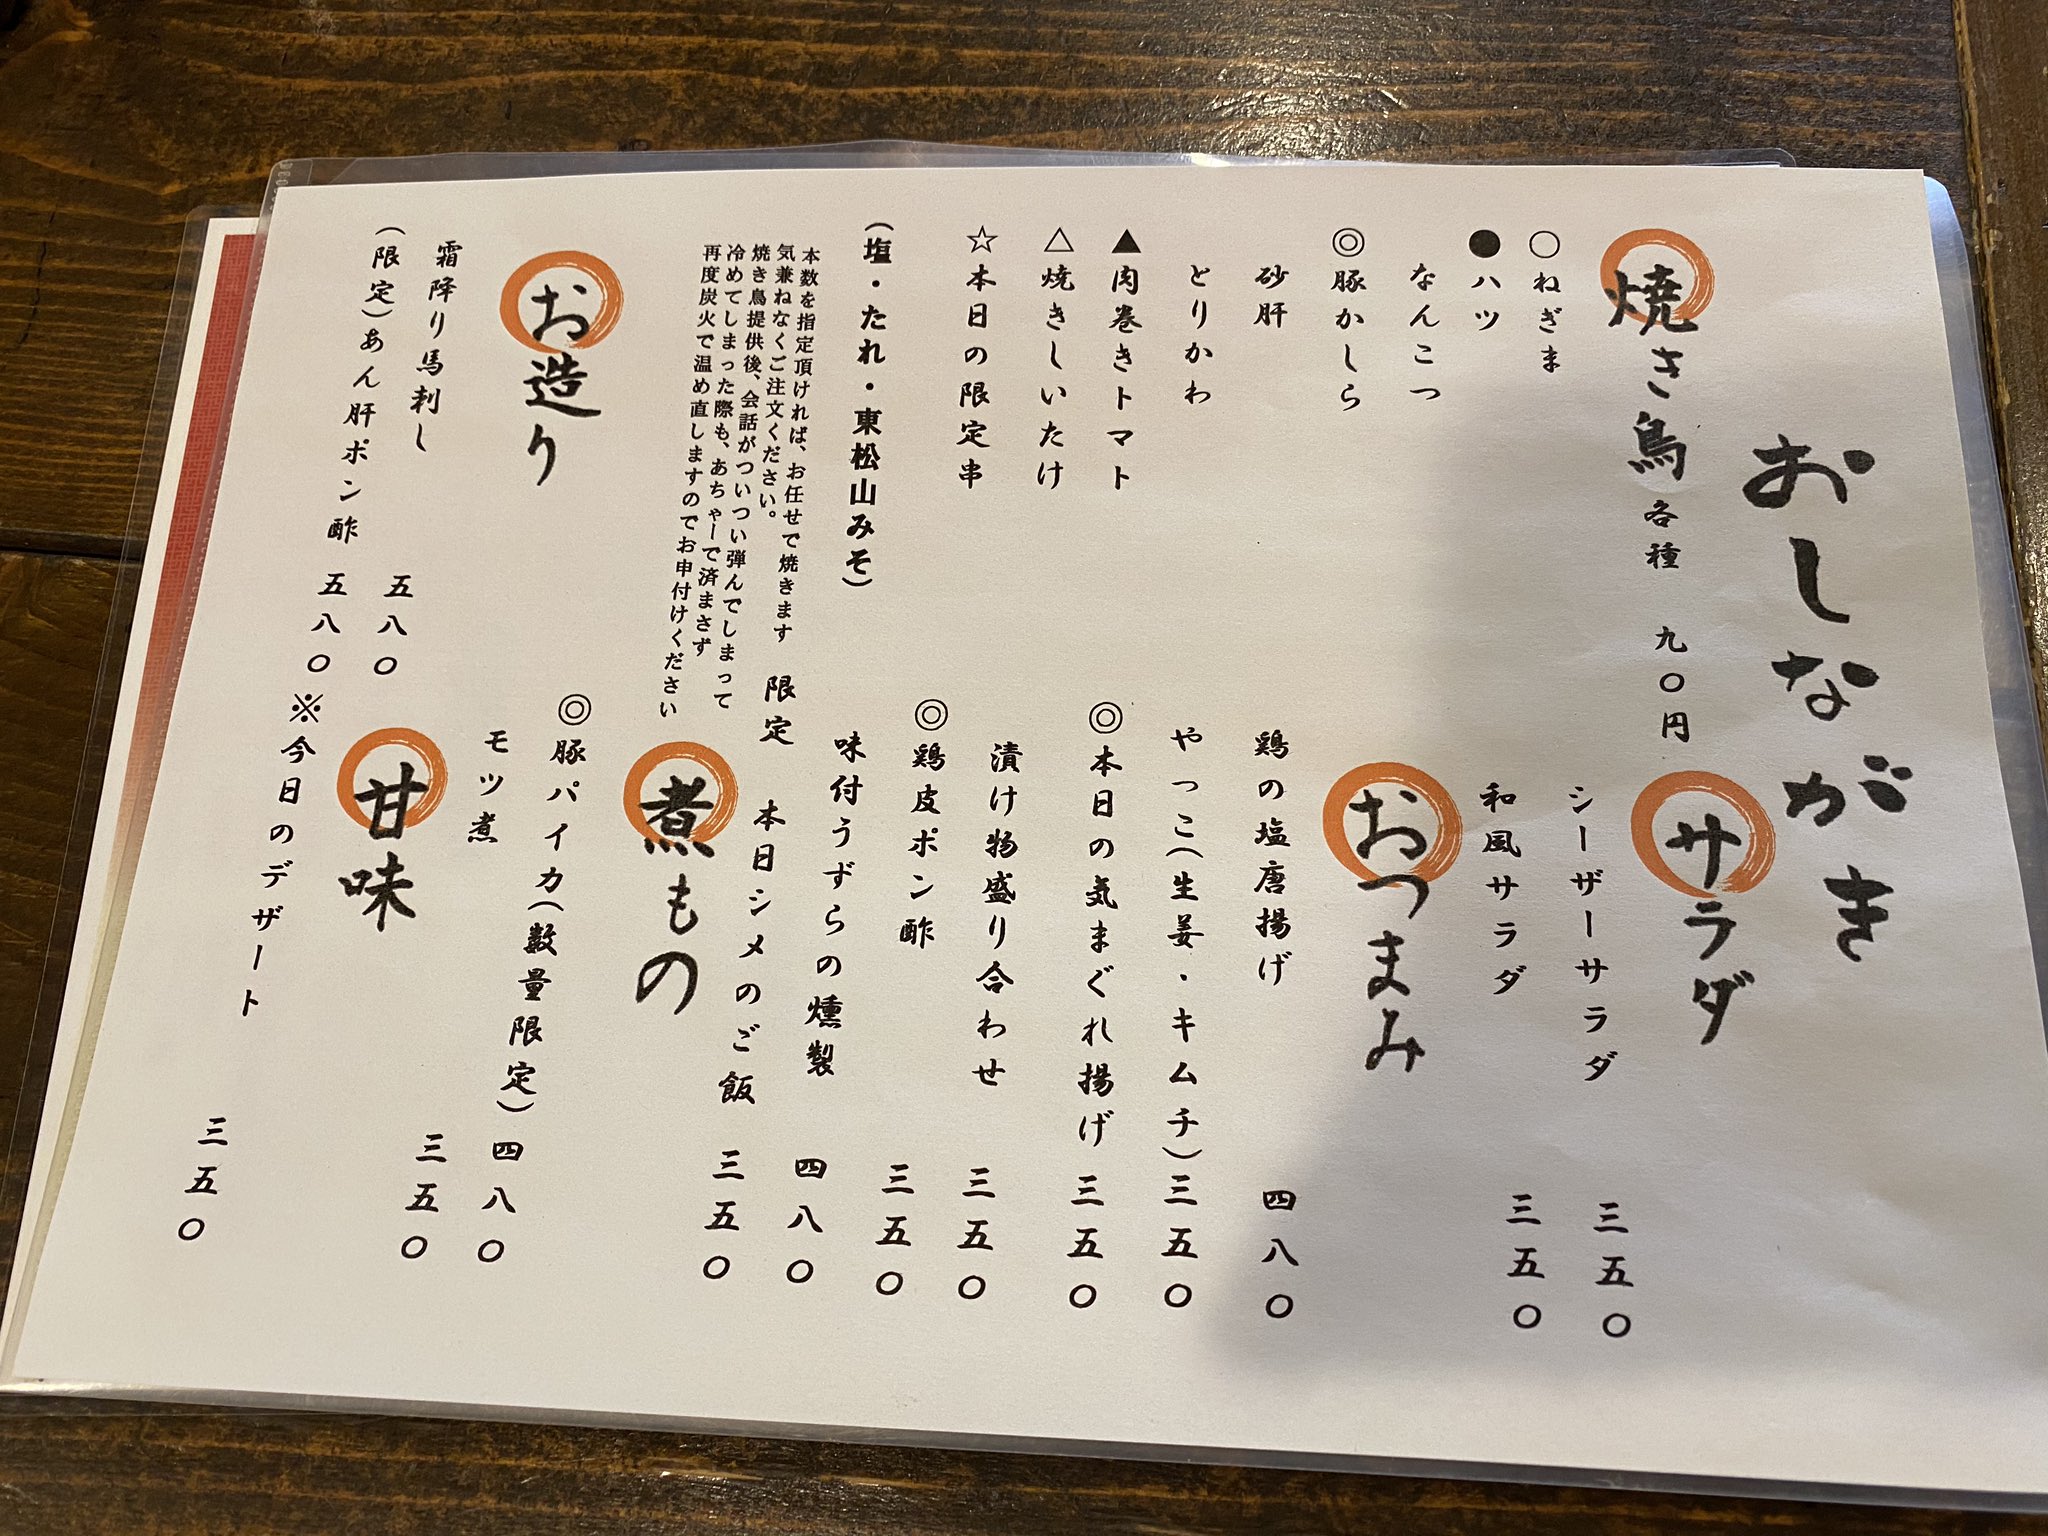 おしながき
焼き鳥 各種 九〇円
○ねぎま
●ハツ
なんこつ
◎豚かしら
砂肝
とりかわ
▲肉巻きトマト
△焼きしいたけ
☆本日の限定串
(塩・たれ・東松山みそ)
本数を指定頂ければ、お任せで焼きます
気兼ねなくご注文ください。
焼き鳥提供後、会話がついつい弾んでしまって
冷めてしまった際も、あちゃーで済まさず
再度炭火で温め直しますのでお申付けください
お造り
霜降り馬刺し 五八〇
(限定)あん肝ポン酢 五八〇
サラダ
シーザーサラダ 三五〇
和風サラダ 三五〇
おつまみ
鶏の塩唐揚げ 四八〇
やっこ(生姜・キムチ) 三五〇
◎本日の気まぐれ揚げ 三五〇
漬け物盛り合わせ 三五〇
◎鶏皮ポン酢 三五〇
味付うずらの燻製 四八〇
限定 本日シメのご飯 三五〇
煮もの
◎豚パイカ(数量限定) 四八〇
モツ煮 三五〇
甘味
※今日のデザート 三五〇